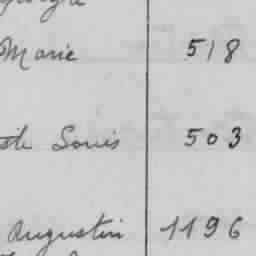 Marie 518
Louis 503
Augustin 1196